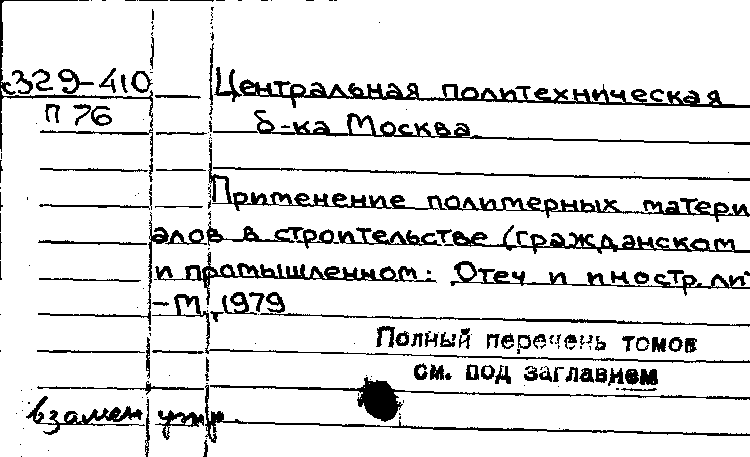 с329-410 Центральная политехническая
П 76 б-ка Москва
Применение полимерных матери
алов в строительстве (гражданском
и промышленном: Отеч и иностр. лит
-М, 1979
Полный перечень томов
см. под заглавием
взамен утр.